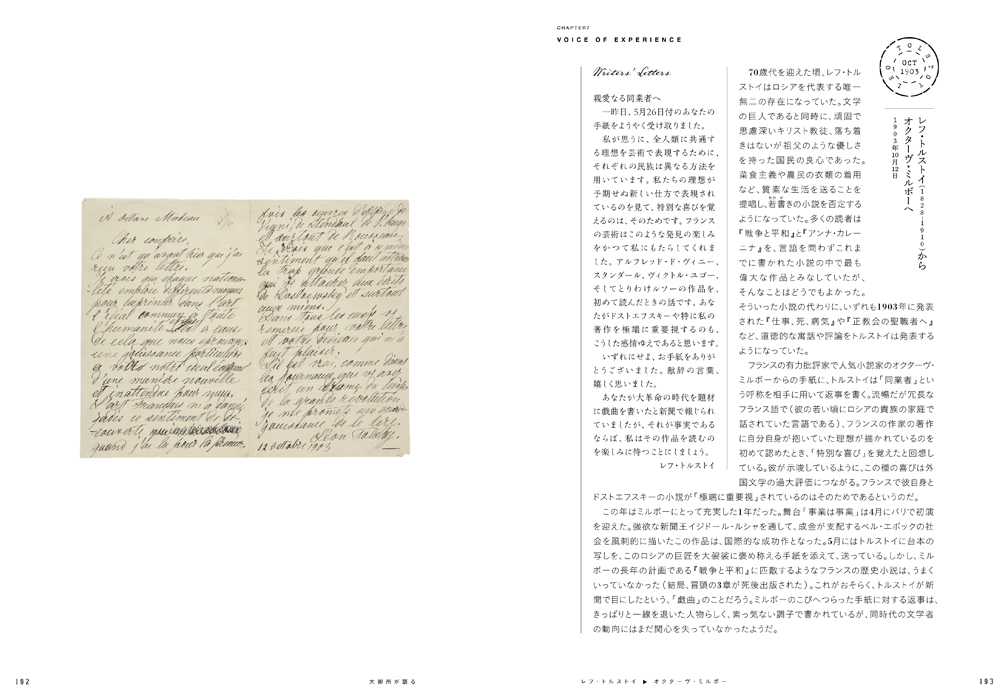 A Octave Mirbeau
Cher confrère,
Ce n'est qu'avant hier que j'ai
reçu votre lettre.
Je crois que chaque nationa-
lité emploie différents moyens
pour exprimer dans l'art
l'idéal commun
à cause
de cela que nous éprouvons
une jouissance particulière
à
d'une manière nouvelle
et inattendue pour nous.
L'art français m'a donné
jadis ce sentiment de dé-
couverte
quand j'ai lu pour la première
fois les œuvres d'Alfred de
Vigny, de Stendhal, de V. Hugo
et surtout de Rousseau.
Je crois que c'est à
sentiment qu'il faut attribuer
la trop grande importance
que
Dostoevsky et surtout
aux miens.
Dans tous les cas je vous
remercie pour votre lettre
et votre dédicace qui m'a
fait plaisir.
la grande révolution
je me promets une
jouissance de le lire.
Léon Tolstoy.
12 octobre 1903
192
大御所が語る
CHAPTER7
VOICE OF EXPERIENCE
Writers' Letters
親愛なる同業者へ
一昨日、5月26日付のあなたの
手紙をようやく受け取りました。
私が思うに、全人類に共通す
る理想を芸術で表現するために、
それぞれの民族は異なる方法を
用いています。私たちの理想が
予期せぬ新しい仕方で表現され
ているのを見て、特別な喜びを覚
えるのは、そのためです。フランス
の芸術はこのような発見の楽しみ
をかつて私にもたらしてくれま
した。アルフレッド・ド・ヴィニー、
スタンダール、ヴィクトル・ユゴー、
そしてとりわけルソーの作品を、
初めて読んだときの話です。あな
たがドストエフスキーや特に私の
著作を極端に重要視するのも、
こうした感情ゆえであると思います。
いずれにせよ、お手紙をありが
とうございました。献辞の言葉、
嬉しく思いました。
あなたが大革命の時代を題材
に戯曲を書いたと新聞で報じられ
ていましたが、それが事実である
ならば、私はその作品を読むの
を楽しみに待つことにしましょう。
レフ・トルストイ
70歳代を迎えた頃、レフ・トル
ストイはロシアを代表する唯一
無二の存在になっていた。文学
の巨人であると同時に、頑固で
思慮深いキリスト教徒、落ち着
きはないが祖父のような優しさ
を持った国民の良心であった。
菜食主義や農民の衣類の着用
など、質素な生活を送ることを
提唱し、若書きの小説を否定する
ようになっていた。多くの読者は
『戦争と平和』と『アンナ・カレー
ニナ』を、言語を問わずこれま
でに書かれた小説の中で最も
偉大な作品とみなしていたが、
そんなことはどうでもよかった。
そういった小説の代わりに、いずれも1903年に発表
された『仕事、死、病気』や『正教会の聖職者へ』
など、道徳的な寓話や評論をトルストイは発表する
ようになっていた。
フランスの有力批評家で人気小説家のオクターヴ・
ミルボーからの手紙に、トルストイは「同業者」とい
う呼称を相手に用いて返事を書く。流暢だが冗長な
フランス語で（彼の若い頃にロシアの貴族の家庭で
話されていた言語である）、フランスの作家の著作
に自分自身が抱いていた理想が描かれているのを
初めて認めたとき、「特別な喜び」を覚えたと回想し
ている。彼が示唆しているように、この種の喜びは外
国文学の過大評価につながる。フランスで彼自身と
ドストエフスキーの小説が「極端に重要視」されているのはそのためであるというのだ。
この年はミルボーにとって充実した1年だった。舞台「事業は事業」は4月にパリで初演
を迎えた。強欲な新聞王イジドール・ルシャを通して、成金が支配するベル・エポックの社
会を風刺的に描いたこの作品は、国際的な成功作となった。5月にはトルストイに台本の
写しを、このロシアの巨匠を大袈裟に褒め称える手紙を添えて、送っている。しかし、ミル
ボーの長年の計画である『戦争と平和』に匹敵するようなフランスの歴史小説は、うまく
いっていなかった（結局、冒頭の3章が死後出版された）。これがおそらく、トルストイが新
聞で目にしたという、「戯曲」のことだろう。ミルボーのこびへつらった手紙に対する返事は、
きっぱりと一線を退いた人物らしく、素っ気ない調子で書かれているが、同時代の文学者
の動向にはまだ関心を失っていなかったようだ。
LEO TOLSTOY
OCT
1903
レフ・トルストイ（1828–1910）から
オクターヴ・ミルボーへ
1903年10月12日
レフ・トルストイ ▶ オクターヴ・ミルボー
193